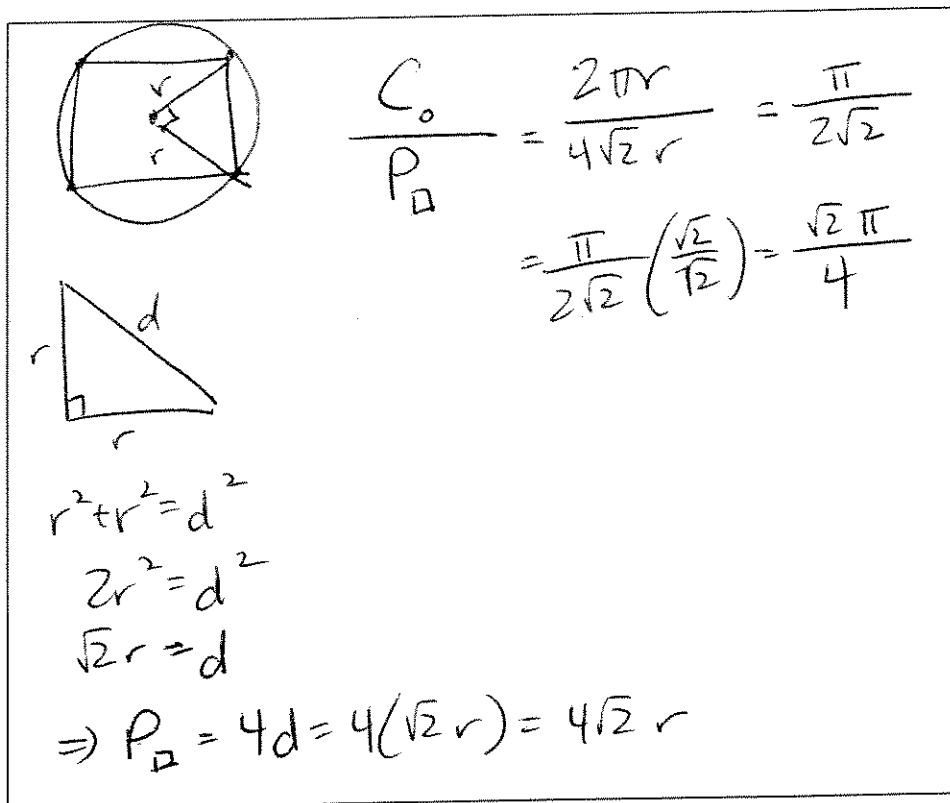 r
r
C○ / P□ = 2πr / 4√2 r = π / 2√2
= π / 2√2 (√2 / √2) = √2 π / 4
r
d
r
r² + r² = d²
2r² = d²
√2 r = d
⇒ P□ = 4d = 4(√2 r) = 4√2 r